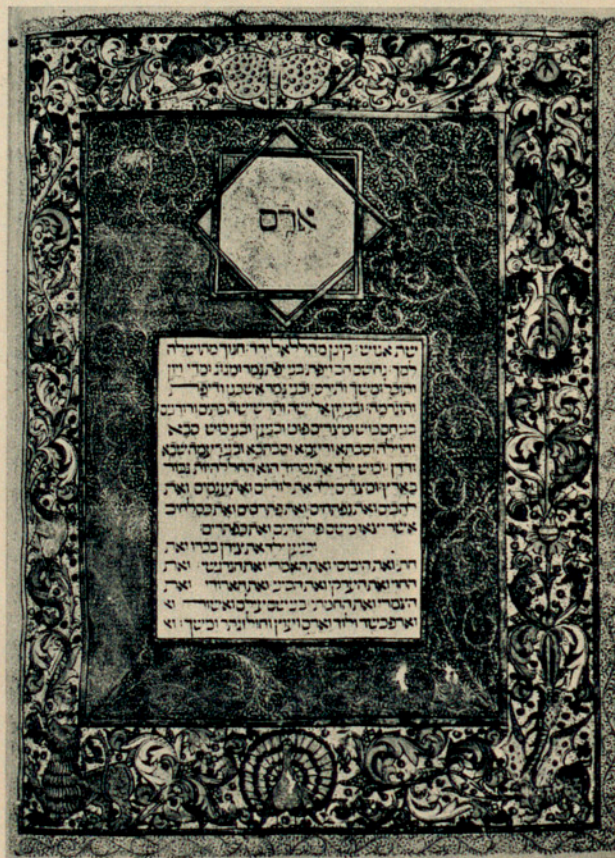 אדם
שת אנוש : קינן מהללאל ירד : חנוך מתושלח
למך : נח שם חם ויפת : בני יפת גמר ומגוג ומדי ויון
ותובל ומשך ותירס : ובני גמר אשכנז ודיפת
ותוגרמה : ובני יון אלישה ותרשישה כתים ורודנים
בני חם כוש ומצרים פוט וכנען : ובני כוש סבא
וחוילה וסבתא ורעמא וסבתכא ובני רעמא שבא
ודדן : וכוש ילד את נמרוד הוא החל להיות גבור
בארץ : ומצרים ילד את לודיים ואת ענמים ואת
להבים ואת נפתחים : ואת פתרסים ואת כסלחים
אשר יצאו משם פלשתים ואת כפתרים
וכנען ילד את צידון בכרו ואת
חת : ואת היבוסי ואת האמרי ואת הגרגשי : ואת
החוי ואת הערקי ואת הסיני : ואת הארודי ואת
הצמרי ואת החמתי : בני שם עילם ואשור
וארפכשד ולוד וארם ועוץ וחול וגתר ומשך :